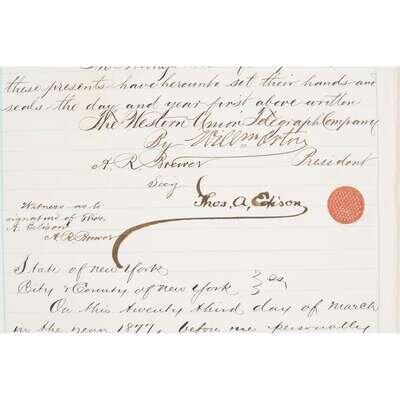 these presents have hereunto set their hands and
seals the day and year first above written
The Western Union Telegraph Company
By Willm Orton
A. R. Brewer President
Secy
Thos. A. Edison
Witness as to
signature of Thos.
A. Edison
A R Brewer
State of New York
City & County of New York } ss,
On this twenty third day of March
in the year 1877, before me personally